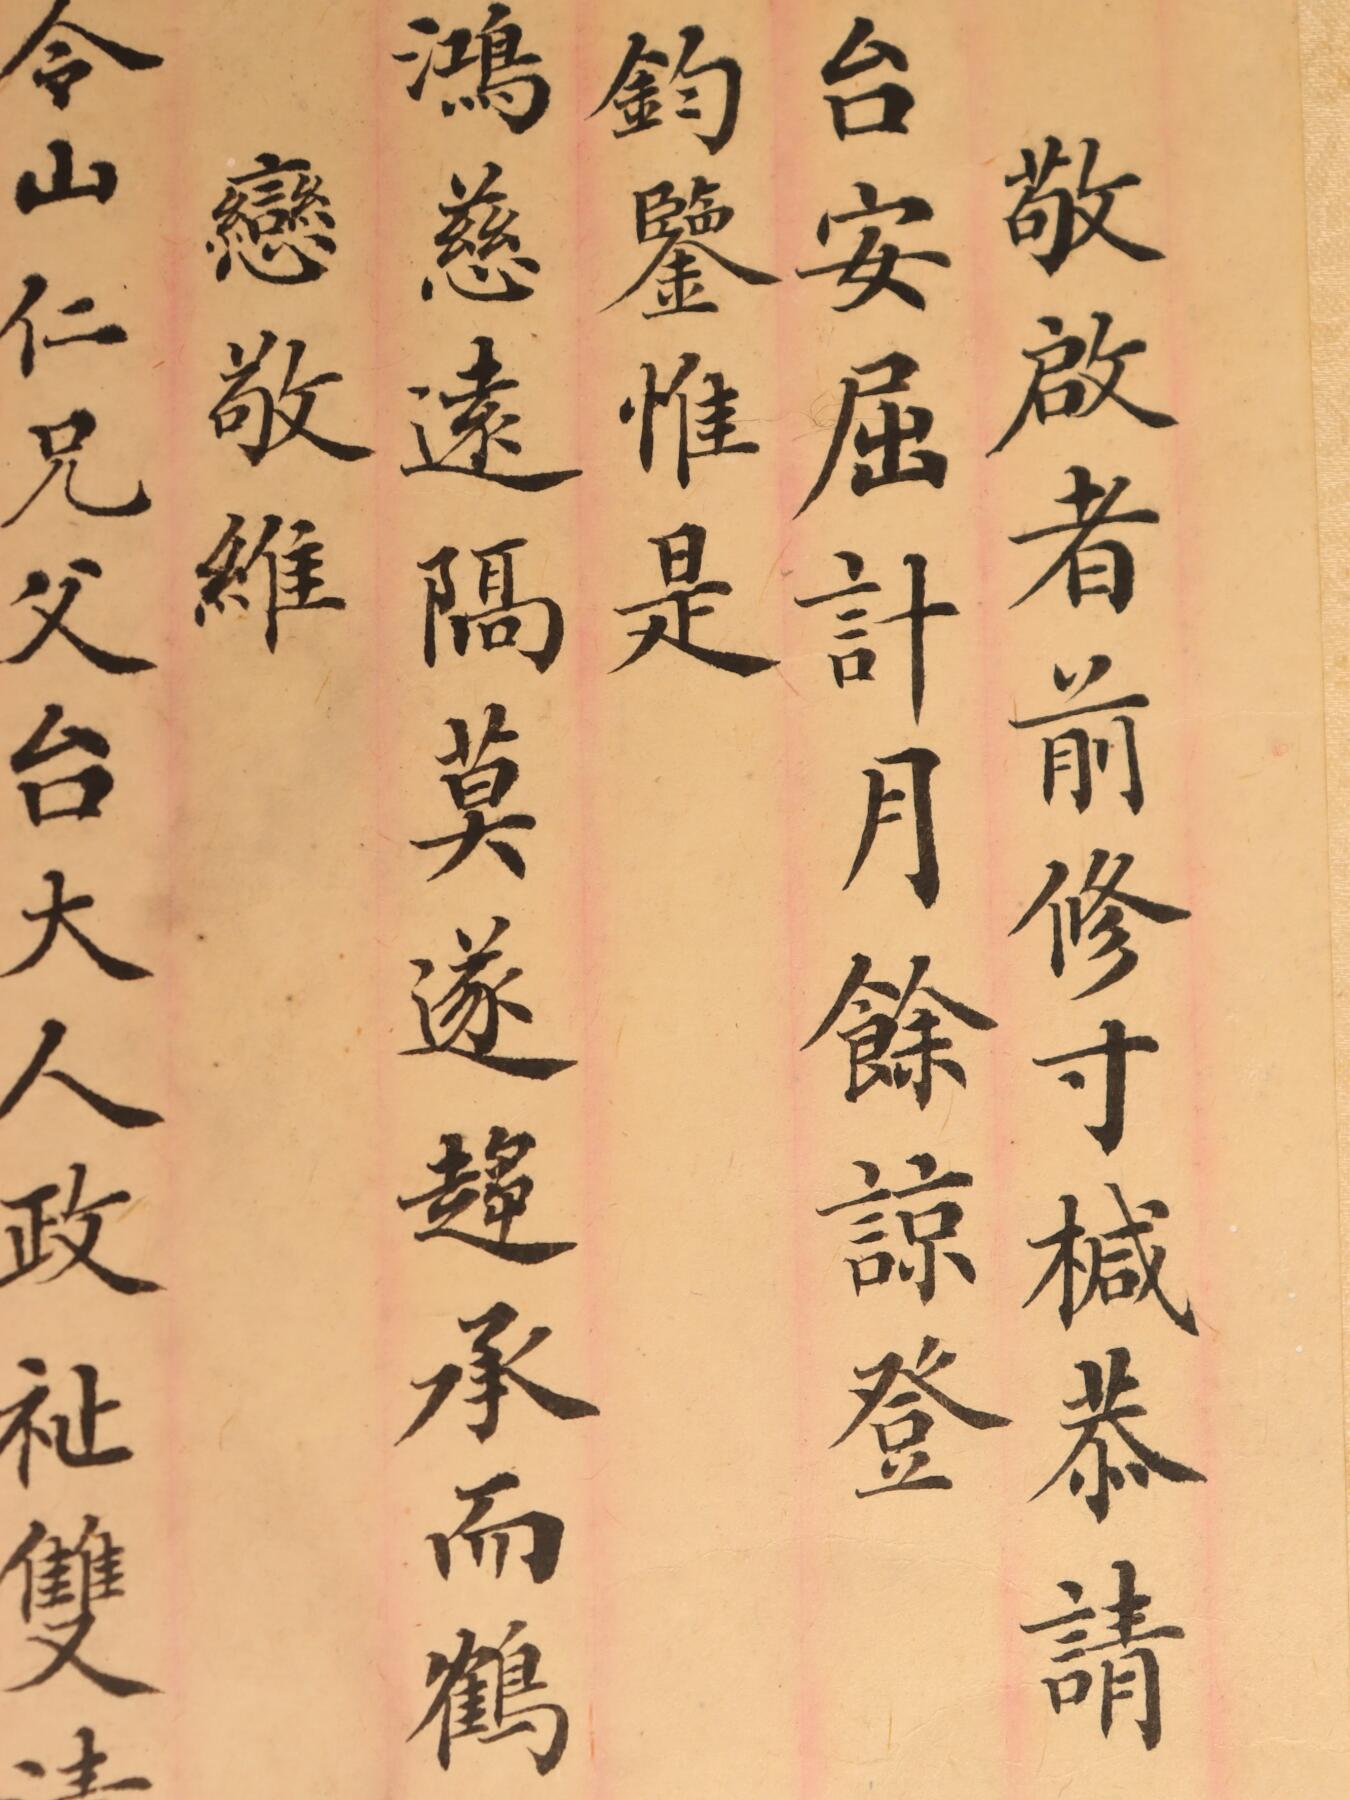 敬啟者前修寸椷恭請
台安屈計月餘諒登
鈞鑒惟是
鴻慈遠隔莫遂趨承而鶴
戀敬維
令山仁兄父台大人政祉雙